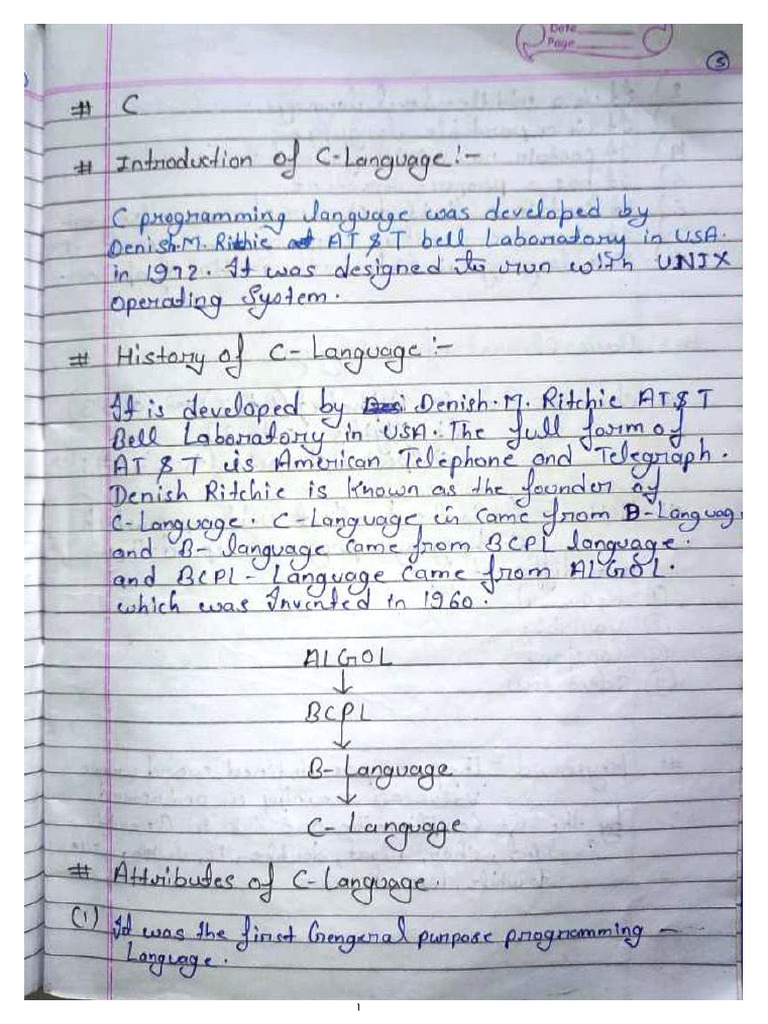 Date
Page
5
# C
# Introduction of C-Language:-
C programming language was developed by
Denish.M. Rithie at AT & T bell Laboratory in USA.
in 1972. It was designed to run with UNIX
operating System.
# History of C-Language:-
It is developed by Denish.M. Ritchie AT & T
Bell Laboratory in USA. The full form of
AT & T is American Telephone and Telegraph.
Denish Ritchie is known as the founder of
C-Language. C-Language in came from B-Languag
and B- language came from BCPL language.
and BCPL- Language came from ALGOL.
which was Invented in 1960.
ALGOL
↓
BCPL
↓
B-Language
↓
C-Language
# Attributes of C-Language.
(1) It was the first Gengeral purpose programming -
Language.
1